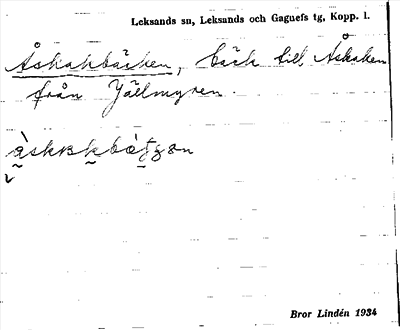 Leksands sn, Leksands och Gagnefs tg, Kopp. l.
Åskakbäcken, bäck till Åskaken
från Jällmyren.
Bror Lindén 1934